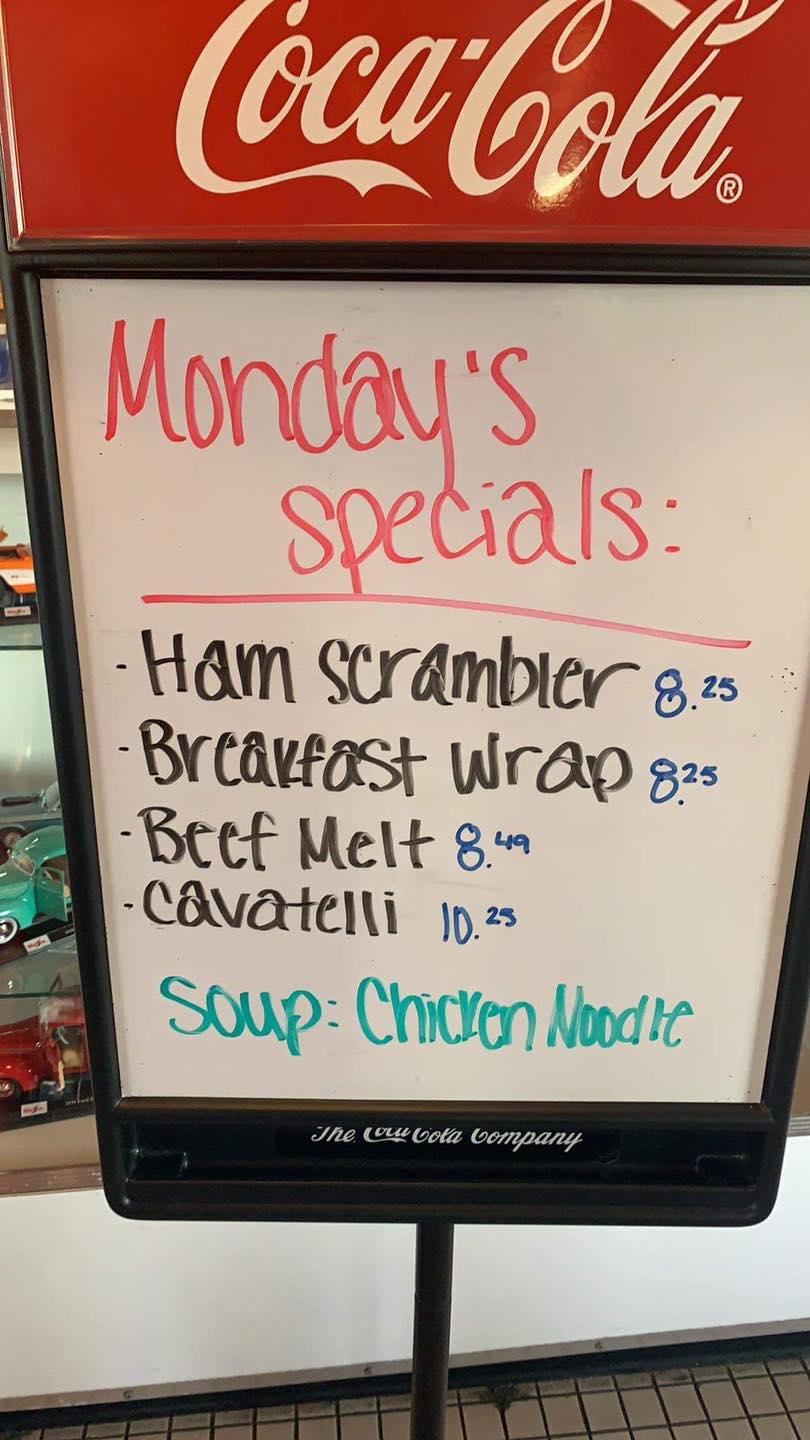 Coca-Cola®
Monday's
specials:
- Ham Scrambler 8.25
- Breakfast Wrap 8.25
- Beef Melt 8.49
- Cavatelli 10.25
Soup: Chicken Noodle
The Coca-Cola Company